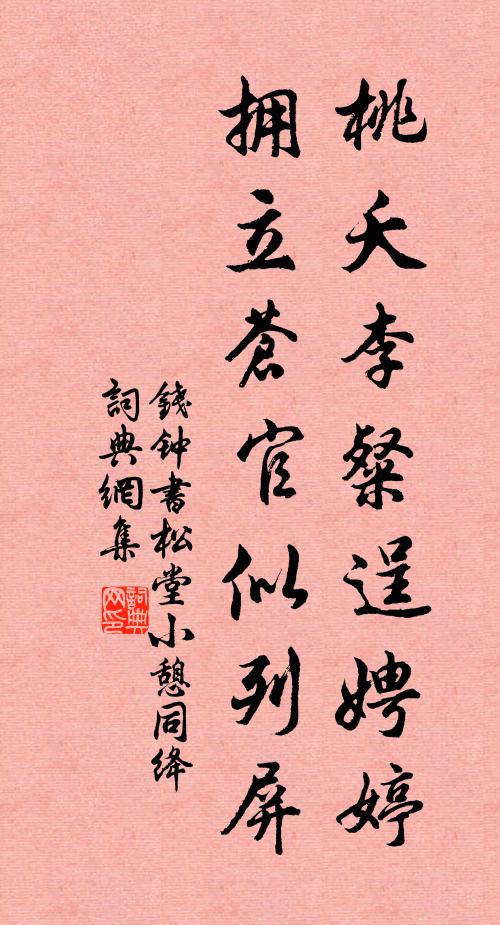 桃夭李粲逞娉婷
拥立苍官似列屏
錢钟書松堂小憩同绛
詞典網集
詞典网印